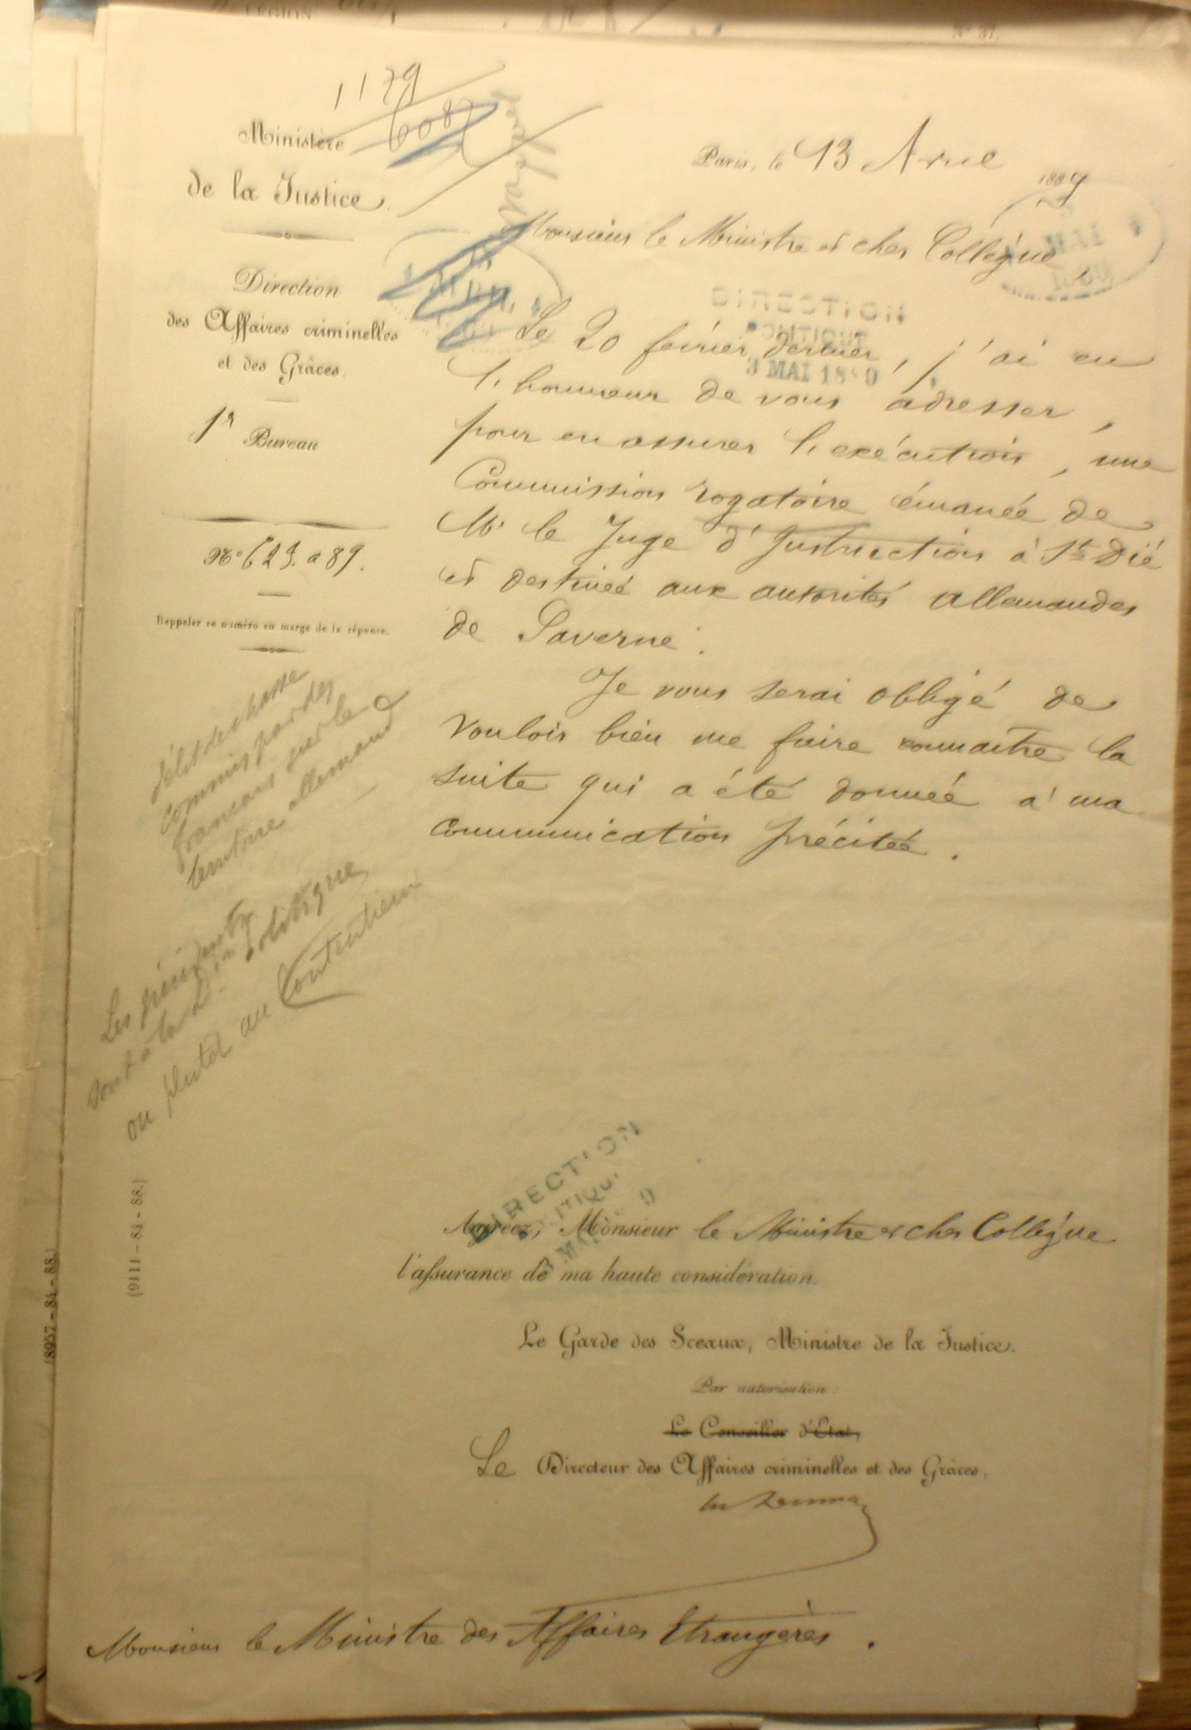 1179
6087
Ministère
de la Justice.
Direction
des Affaires criminelles
et des Grâces.
1r Bureau
No 623. a 89.
Rappeler ce numéro en marge de la réponse.
Paris, le 13 Avril 1889
Monsieur le Ministre et cher Collègue,
DIRECTION
POLITIQUE
3 MAI 1889
Le 20 février dernier, j'ai eu
l'honneur de vous adresser,
pour en assurer l'exécution, une
Commission rogatoire émanée de
Mr le Juge d'Instruction à St Dié
et destinée aux autorités allemandes
de Saverne.
Je vous serai obligé de
vouloir bien me faire connaître la
suite qui a été donnée à ma
communication précitée.
délit de chasse
commis par des
français sur le
territoire allemand
Les précédents
sont à la Don Politique
ou plutôt au Contentieux
(9111-84-88.)
(8957-84-88.)
DIRECTION
POLITIQUE
Agréez, Monsieur le Ministre et cher Collègue
l'assurance de ma haute considération.
Le Garde des Sceaux, Ministre de la Justice.
Par autorisation:
Le Conseiller d'Etat,
Le Directeur des Affaires criminelles et des Grâces,
Monsieur le Ministre des Affaires Etrangères.